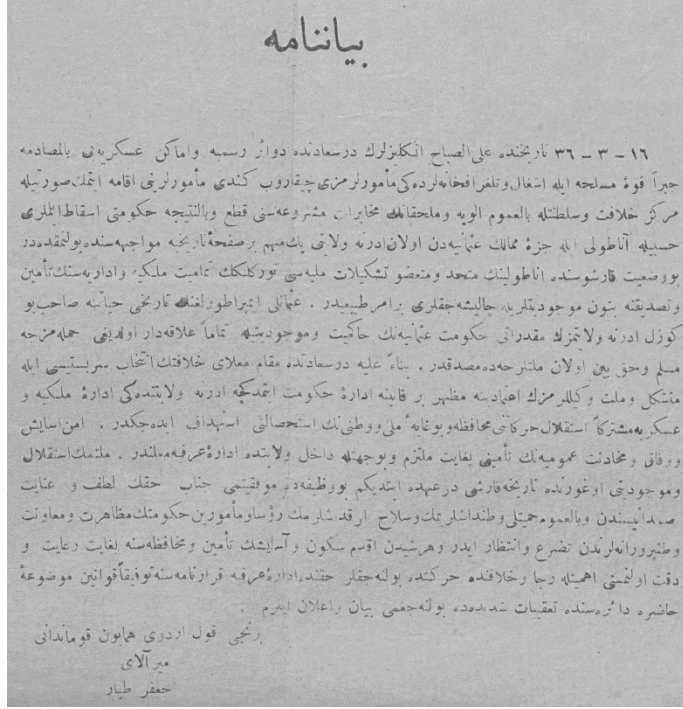 بياننامه
١٦ – ٣ – ٣٦ تاريخنده على الصباح انكليزلرك درسعادتده دوائر رسميه واماكن عسكريه‌يى بالمصادمه
جبراً قوۀ مسلحه ايله اشغال وتلغرافخانه‌لرده‌كى مأمورلرمزى چيقاروب كندى مأمورلرينى اقامه ايتمك صورتيله
مركز خلافت وسلطنتله بالعموم الويه وملحقاتك مخابرات مشروعه‌سنى قطع وبالنتيجه حكومتى اسقاط ايتملرى
حسبيله آناطولى ايله جزۀ ممالك عثمانيه‌دن اولان ادرنه ولايتى پك مهم بر صفحۀ تاريخيه مواجهه‌سنده بولنمقده‌در
بووضعيت قارشوسنده اناطولينك متحد ومتعضو تشكيلات مليه‌سى توركلكك تماميت ملكيه واداريه‌سنك تأمين
وتصديقنه بتون موجوديتلريله چاليشه‌جقلرى برامر طبيعيدر . عثمانلى ايمپراطورلغنك تاريخى حياتنه صاحب بو
كوزل ادرنه ولايتمزك مقدراتى حكومت عثمانيه‌نك حاكميت وموجوديتيله تماماً علاقه‌دار اولديغى جمله‌مزجه
مسلم وحق بين اولان ملتلرجه‌ده مصدقدر . بناءً عليه درسعادتده مقام معلاى خلافتك انتخاب سربستيسى ايله
متشكل وملت وكيللرمزك اعتمادينه مظهر بر قابينه ادارۀ حكومت ايتمدكجه ادرنه ولايتنده‌كى ادارۀ ملكيه و
عسكريه مشتركاً استقلال حركاتنى محافظه وبوغايۀ ملى ووطنى‌نك استحصالنى استهداف ايده‌جكدر . امن اسايش
ووفاق ومخادنت عموميه‌نك تأمينى بغايت ملتزم وبوجهتله داخل ولايتده ادارۀ عرفيه معلندر . ملتمك استقلال
وموجوديتى اوغورنده تاريخه قارشى درعهده ايتديكم بووظيفه‌ده موفقيتمى جناب حقك لطف و عنايت
صمدانيسندن وبالعموم حميتلى وطنداشلريمك وسلاح ارقداشلرمك رؤسا ومأمورين حكومتك مظاهرت ومعاونت
وطنپرورانه‌لرندن تضرع وانتظار ايدر وهرشيدن اقدم سكون وآسايشك تأمين ومحافظه‌سنه بغايت رعايت و
دقت اولنمسنى اهميتله رجا وخلافنده حركتده بولنه‌جقلر حقنده ادارۀ عرفيه قرارنامه‌سنه توفيقاً قوانين موضوعۀ
حاضره دائره‌سنده تعقيبات شديده‌ده بولنه‌جغمى بيان واعلان ايلرم .
برنجى قول اردوى همايون قوماندانى
ميرآلاى
جعفر طيار